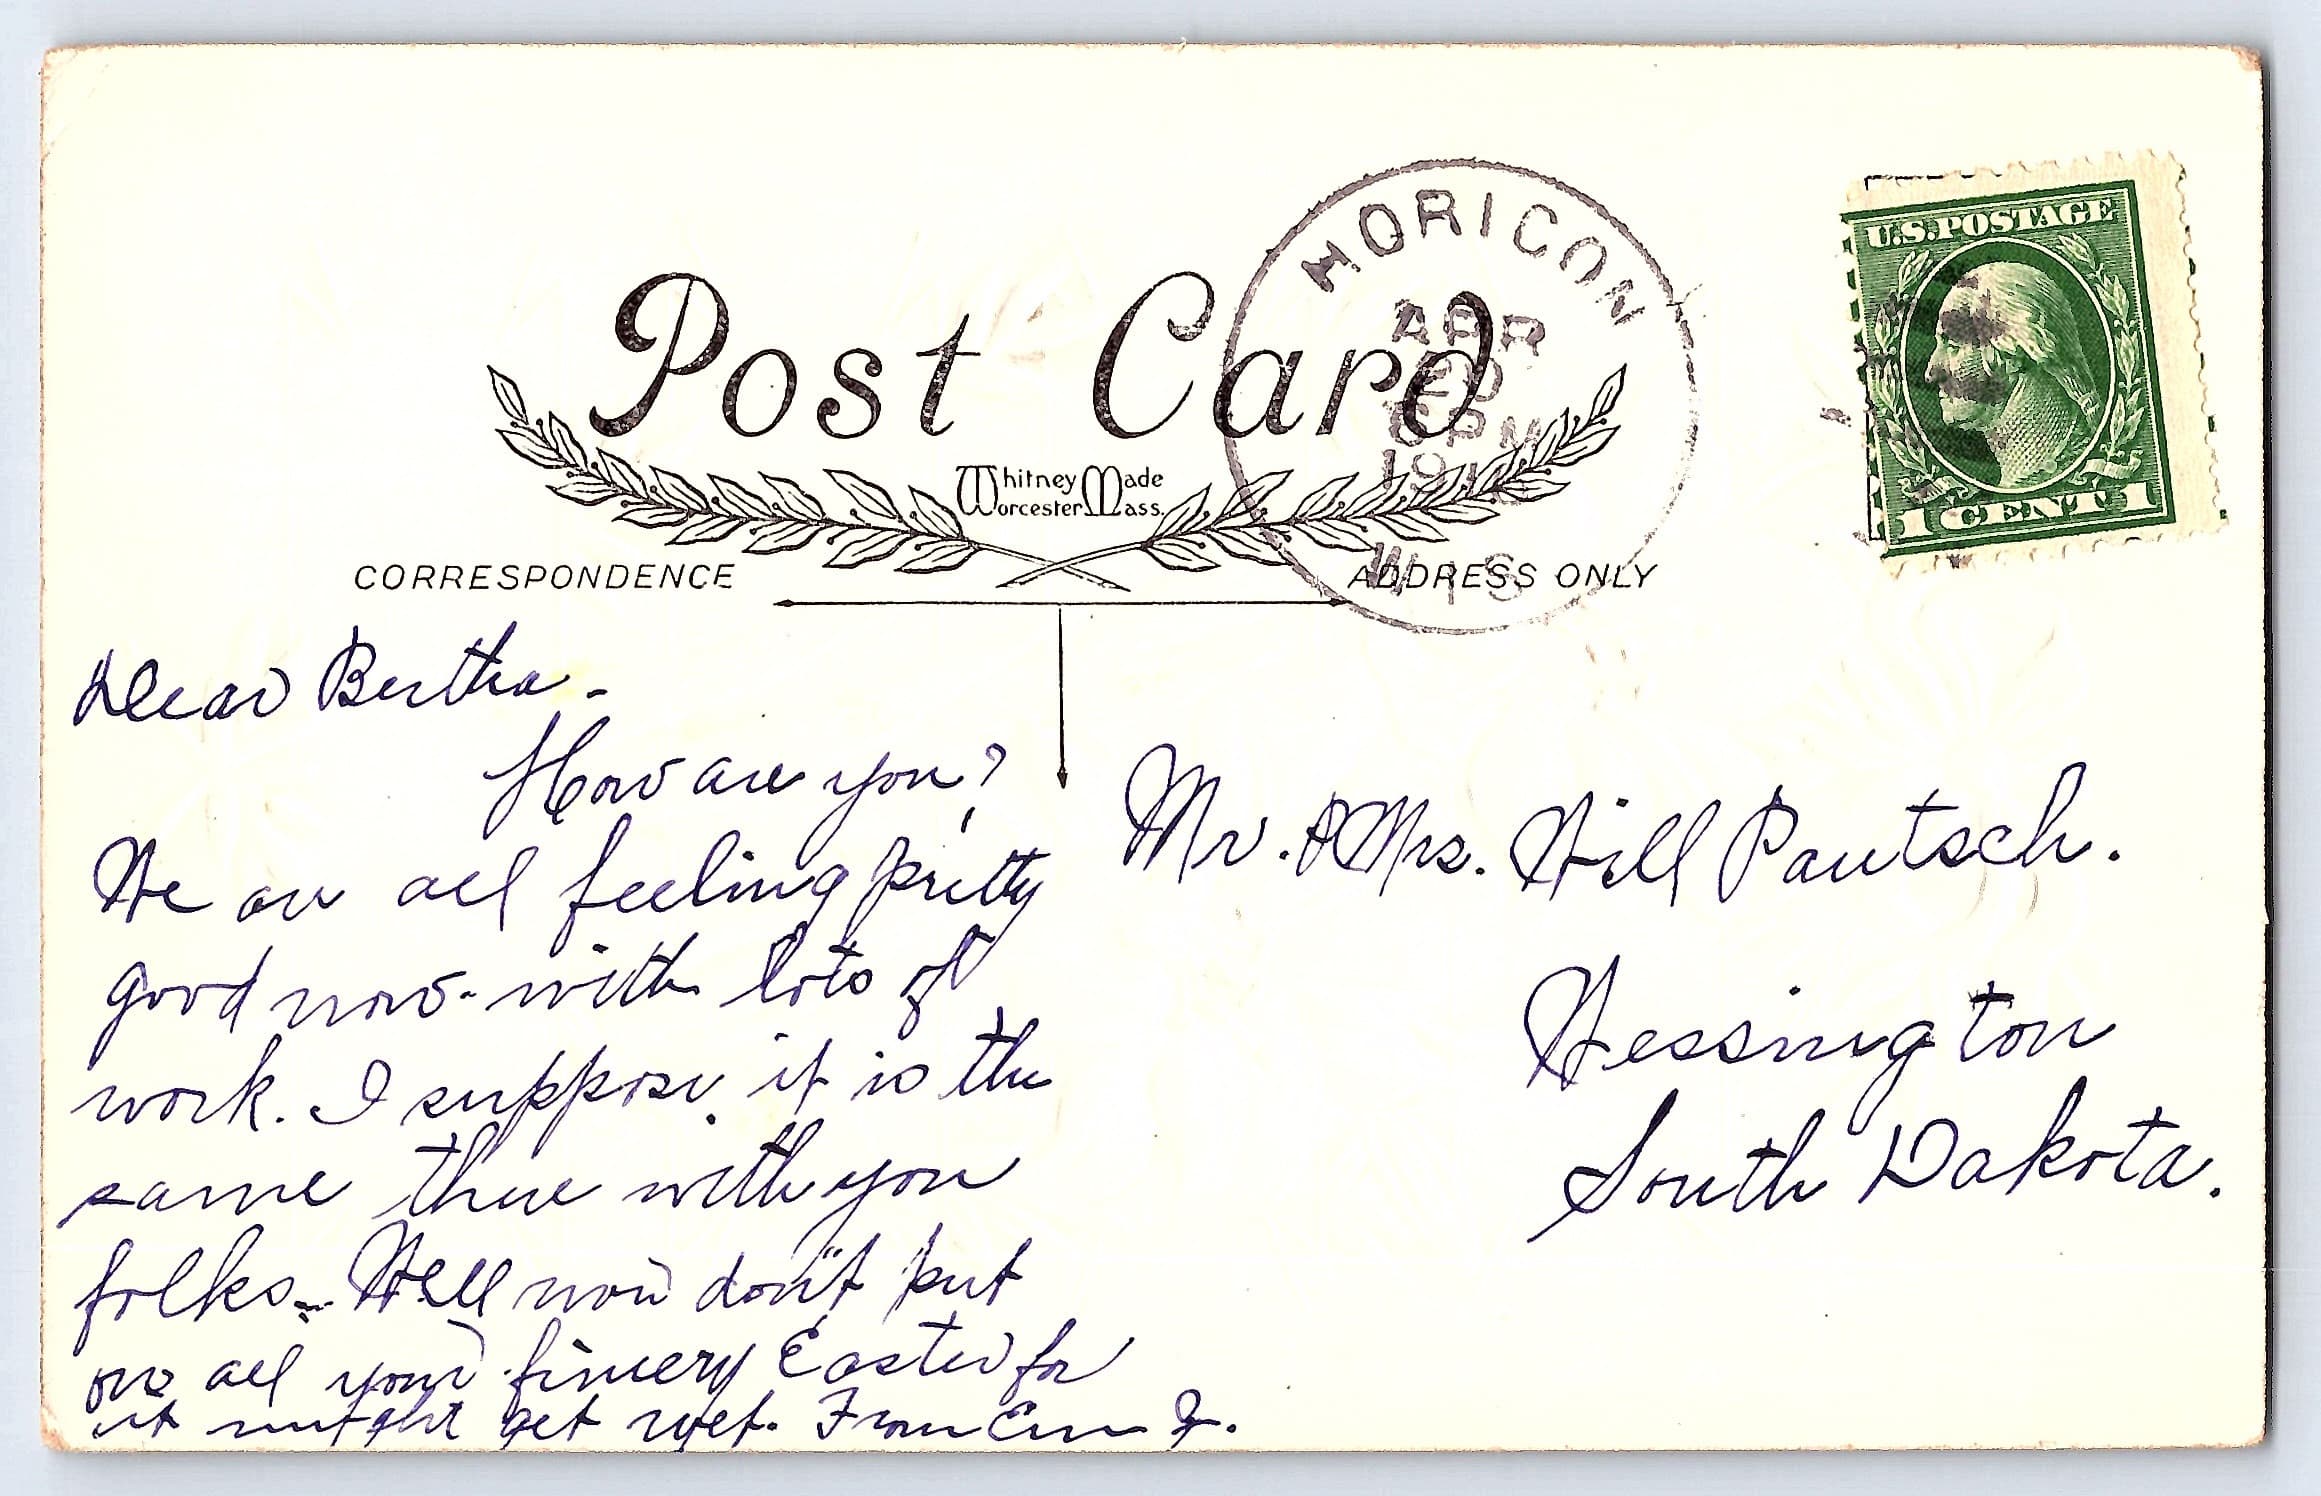 Post Card
Whitney Made
Worcester Mass.
CORRESPONDENCE
ADDRESS ONLY
HORICON
APR
PM
WIS
U.S. POSTAGE
1 CENT 1
Dear Bertha -
How are you?
We are all feeling pretty
good now - with lots of
work. I suppose it is the
same there with you
folks - Well now don't put
on all your finery Easter for
it might get wet. From Em
Mr. & Mrs. Will Pautsch.
Wessington
South Dakota.